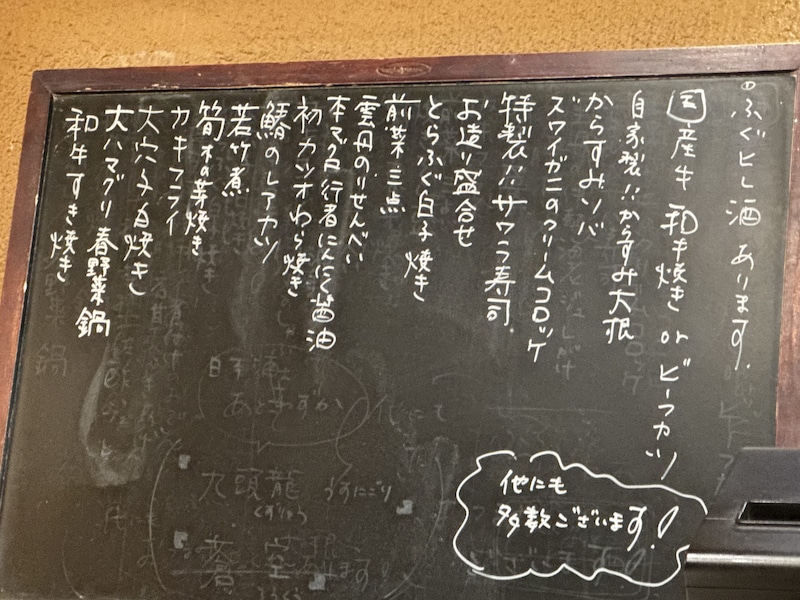 ふぐヒレ酒 あります.
国産牛 和牛焼き or ビーフカツ
自家製!! からすみ大根
からすみソバ
ズワイガニのクリームコロッケ
特製!! サワラ寿司.
お造り盛合せ
とらふぐ白子焼き
前菜三点
雲丹のりせんべい
本マグロ行者にんにく醤油
初カツオわら焼き
鰆のレアカツ
若竹煮
筍木の芽焼き
カキフライ
大穴子白焼き
大ハマグリ春野菜鍋
和牛すき焼き
他にも
多数ございます!
あとわずか
九頭龍 うすにごり
くずりゅう
蒼空